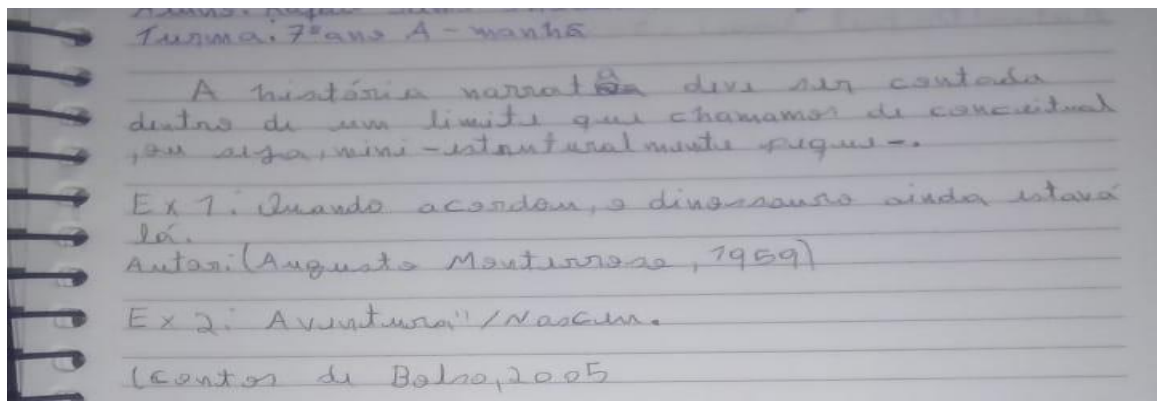 Turma: 7º ano A - manhã
A história narrat a deve ser contada
dentro de um limite que chamamos de conceitual
, ou seja, mini-estruturalmente peque-.
Ex 1: Quando acordou, o dinossauro ainda estava
lá.
Autor: (Augusto Monterroso, 1959)
Ex 2: Aventura" / Nasceu.
(contos de Bolso, 2005